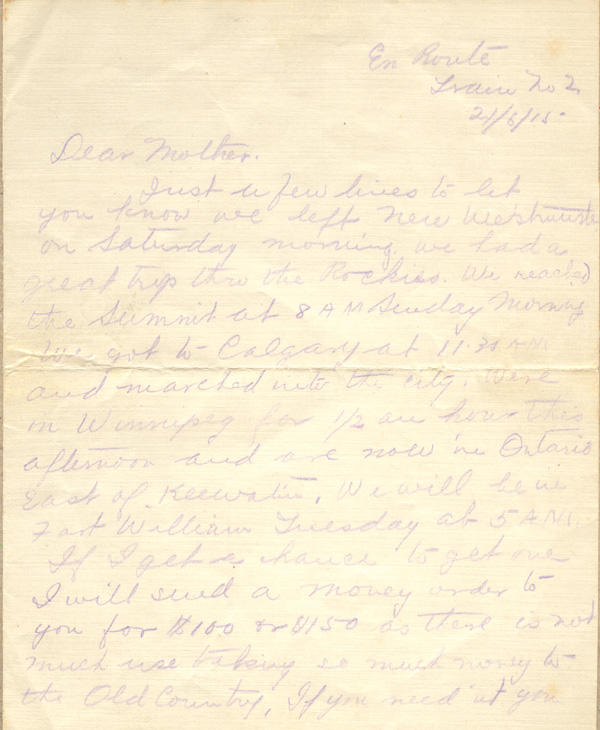 En Route
Train No 2
21/6/15
Dear Mother.
Just a few lines to let
you know we left New Westminster
on Saturday morning. we had a
great trip thru the Rockies. We reached
the Summit at 8 AM Sunday Morning
We got to Calgary at 11.30 AM
and marched into the city. Were
in Winnipeg for 1/2 an hour this
afternoon and are now in Ontario
East of Keewatin. We will be in
Fort William Tuesday at 5 AM.
If I get a chance to get one
I will send a money order to
you for $100 or $150 as there is not
much use taking so much money to
the Old Country. If you need it you